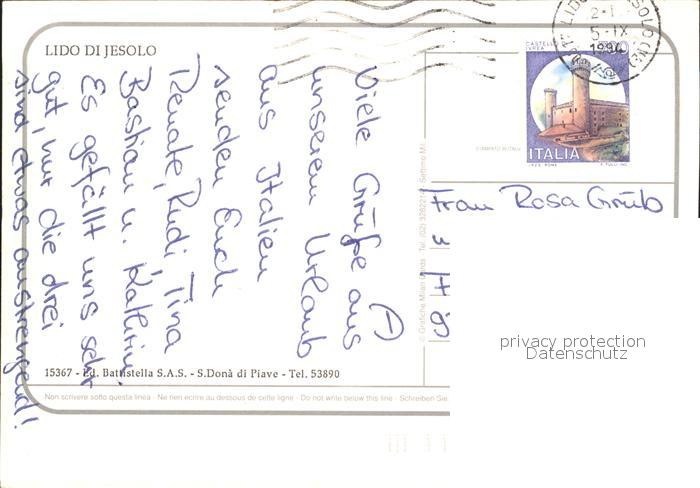 LIDO DI JESOLO
Viele Grüße aus
unserem Urlaub
aus Italien
senden Euch
Renate, Rudi, Tina
Bastian u. Kathrin,
Es gefällt uns sehr
gut, nur die drei
sind etwas anstrengend!
15367 - Ed. Battistella S.A.S. - S.Donà di Piave - Tel. 53890
Non scrivere sotto questa linea - Ne rien ecrire au dessous de cette ligne - Do not write below this line - Schreiben Sie
© Grafiche Milan Cards Tel. (02) Settimo Mil.
LIDO JESOLO
5-IX
1994
ITALIA
Frau Rosa Grüb
privacy protection
Datenschutz